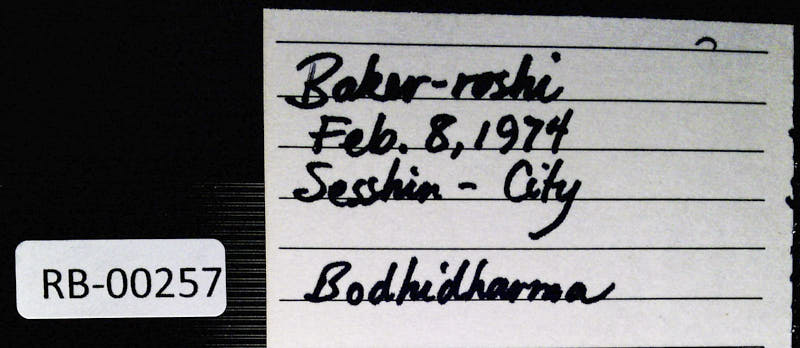 Baker-roshi
Feb. 8, 1974
Sesshin - City
Bodhidharma
RB-00257